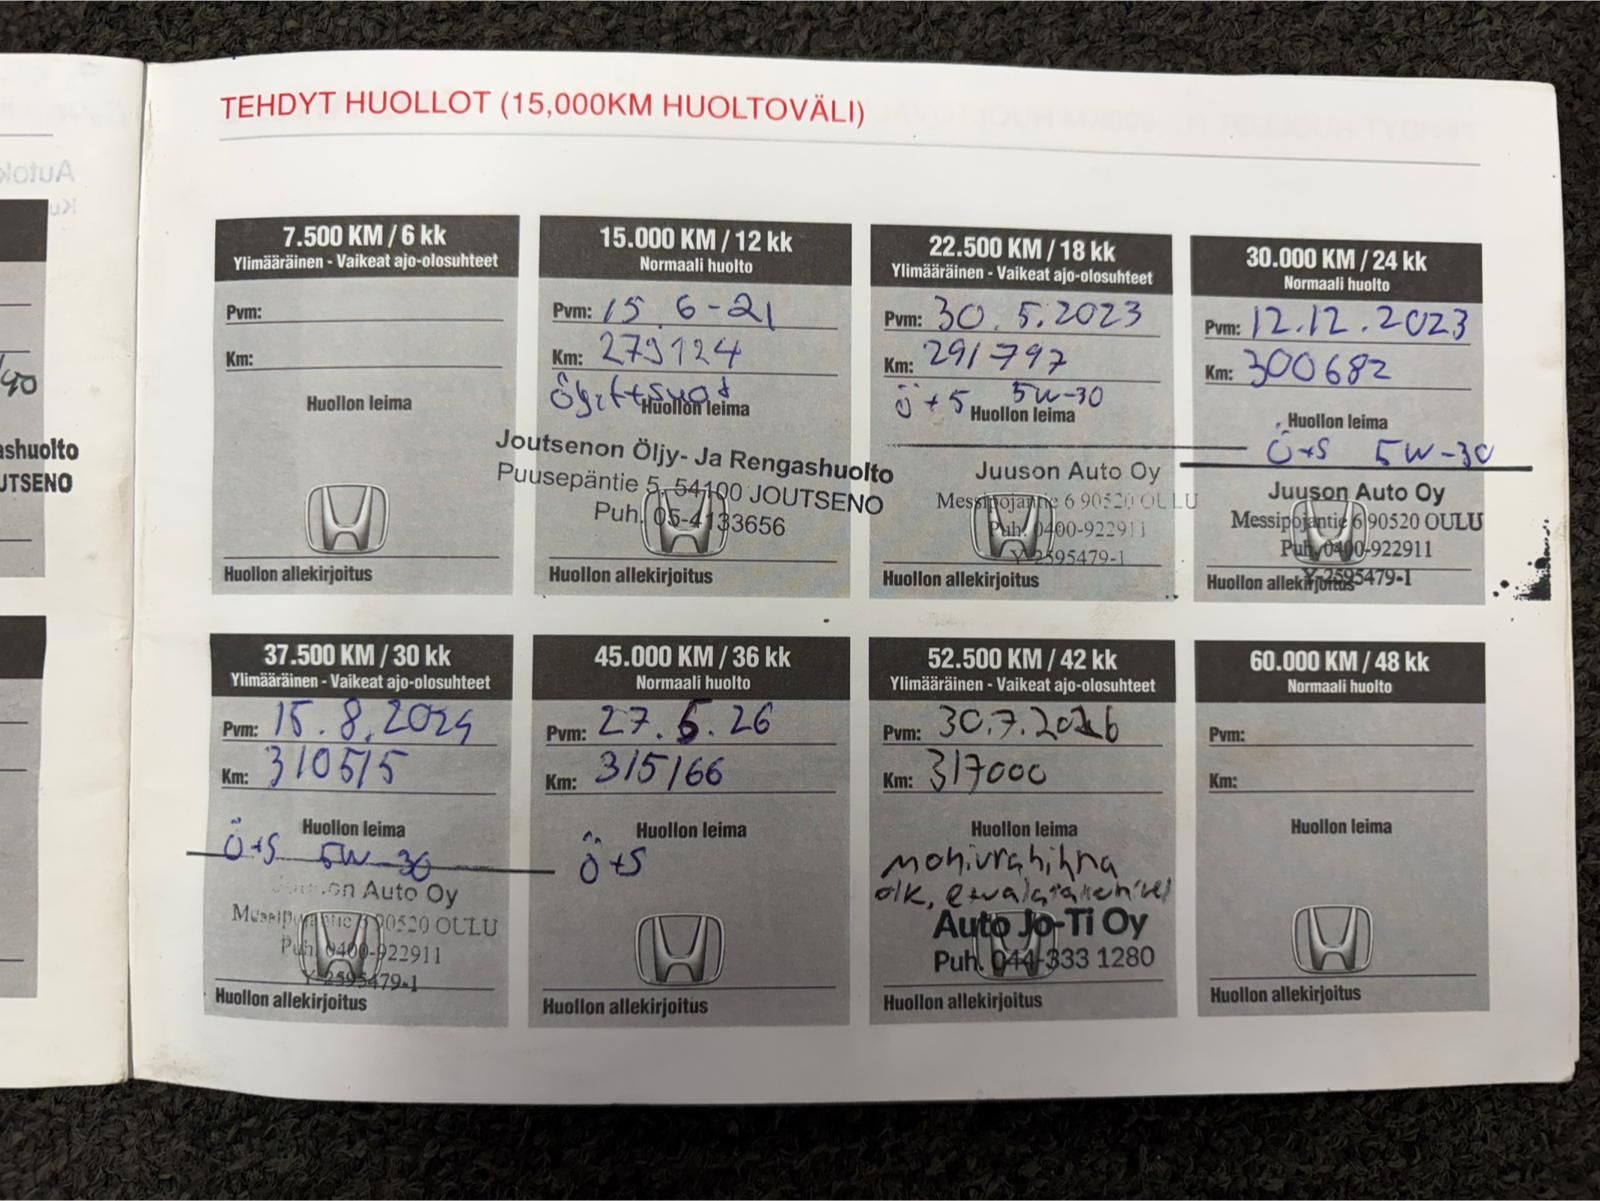 TEHDYT HUOLLOT (15,000KM HUOLTOVÄLI)
7.500 KM / 6 kk
Ylimääräinen - Vaikeat ajo-olosuhteet
Pvm:
Km:
Huollon leima
Huollon allekirjoitus
15.000 KM / 12 kk
Normaali huolto
Pvm: 15.6-21
Km: 279124
Huollon leima
Joutsenon Öljy- Ja Rengashuolto
Puusepäntie 5, 54100 JOUTSENO
Puh. 05-4133656
Huollon allekirjoitus
22.500 KM / 18 kk
Ylimääräinen - Vaikeat ajo-olosuhteet
Pvm: 30.5.2023
Km: 291797
Ö+S 5W-30
Huollon leima
Juuson Auto Oy
Messipojantie 6 90520 OULU
Puh. 0400-922911
Y-2595479-1
Huollon allekirjoitus
30.000 KM / 24 kk
Normaali huolto
Pvm: 12.12.2023
Km: 300682
Huollon leima
Ö+S 5W-30
Juuson Auto Oy
Messipojantie 6 90520 OULU
Puh. 0400-922911
Y-2595479-1
Huollon allekirjoitus
37.500 KM / 30 kk
Ylimääräinen - Vaikeat ajo-olosuhteet
Pvm: 15.8.2024
Km: 310515
Huollon leima
Ö+S 5W-30
Juuson Auto Oy
Messipojantie 6 90520 OULU
Puh. 0400-922911
Y-2595479-1
Huollon allekirjoitus
45.000 KM / 36 kk
Normaali huolto
Pvm: 27.5.26
Km: 315166
Huollon leima
Ö+S
Huollon allekirjoitus
52.500 KM / 42 kk
Ylimääräinen - Vaikeat ajo-olosuhteet
Pvm: 30.7.2026
Km: 317000
Huollon leima
moniurahihna
Auto Jo-Ti Oy
Puh. 044-333 1280
Huollon allekirjoitus
60.000 KM / 48 kk
Normaali huolto
Pvm:
Km:
Huollon leima
Huollon allekirjoitus